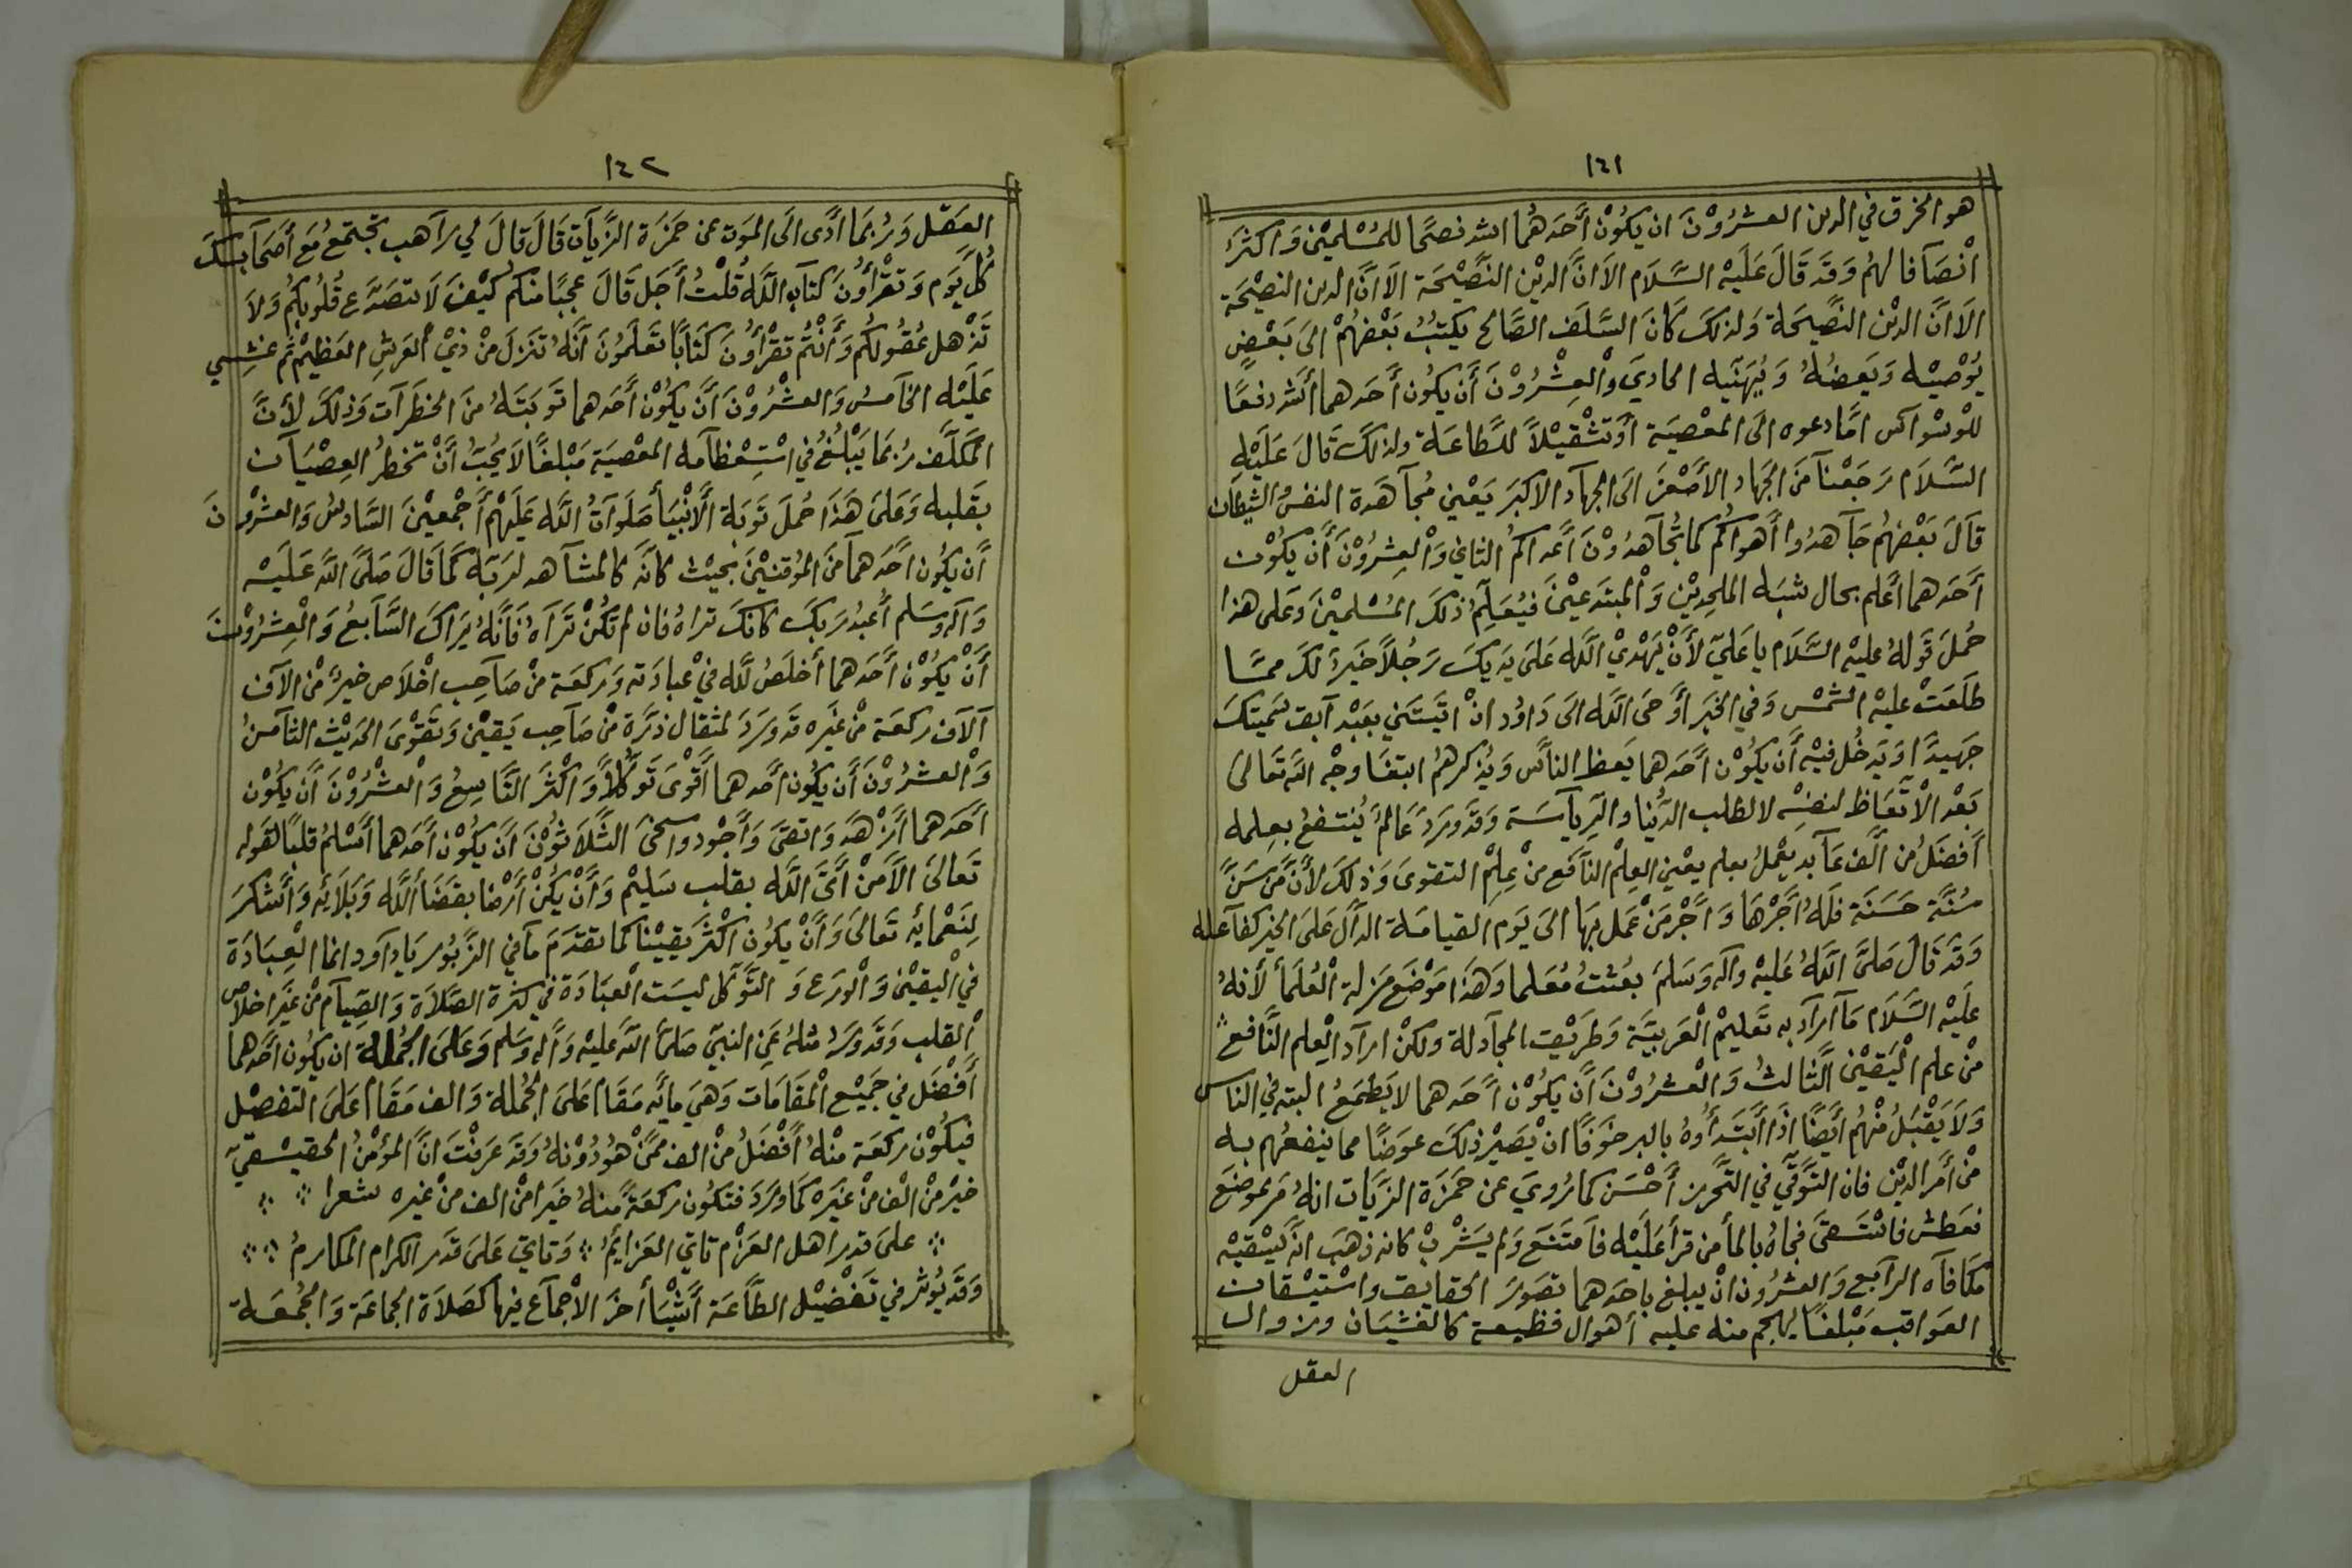 ١٤١
هو الخرق في الدين العشرُوْنَ ان يكُوْن أَحَدهُما اشد نصحًا للمُسْلميْن وَاكثرُ
انْصَآفا لهُم وَقَد قَالَ عَلَيْه السَّلَام الَا انَّ الديْن النَّصِيْحَة الَا انَّ الدين النصيْحَة
الَا انَّ الديْن النصِّيْحَة وَلذلكَ كَانَ السَّلَف الصَّالح يكتبُ بَعْضهُمْ الىَ بَعْض
يُوْصيْه وَيَعضهُ وَيُنَبّيه الحاديَ وَالْعِشْرُوْنَ أَن يكُون أَحَدهما أَشد دفعًا
للوْسْوآس امَّا دعوه الىَ المعْصيَة أَوتَثْقيْلاً للطَّاعَة ولذلكَ قَالَ عَلَيْه
السَّلَام رَجَعْنآ مَن الجهَاد الأَصْغر الىَ الجهآد الاكبَر يَعْني مُجآهَدة النفس والشيْطَان
قآلَ بَعْضهُم جَآهدُوا أَهواكُم كما تُجآهدُوْنَ أَعداكمُ الثاني وَالْعِشرُوْنَ أَنْ يكُوْن
أَحَدهما أَعْلم بحال شبَه الملحِديْن وَالْمبتدَعيْنَ فيُعَلِّمُ ذلكَ المُسْلميْنَ وَعَلى هذا
حُملَ قَولهُ عليْه السَّلَام يا عَليّ لأَنْ يَهْديْ اللَّه عَلىَ يَديكَ رَجُلاً خَيرٌ لكَ ممَّا
طلَعَتْ عليْه الشمْس وَفي الخبَر أَوْحَى اللَّه الىَ دَاوُد انْ اتيَتَني بعَبْد آبق سَمَّيتكَ
جَهبذًا وَيَدخُل فيْه أَن يكُوْن أَحَدهما يَعظ النآس وَيُذكرهمُ ابتغَا وَجْه اللّه تَعَالىَ
بَعْد الْاتّعَاظ لنفسْه لا لطلب الدُّنيا والرِيآسَة وَقد وَرَدَ عَالمٌ يُنتفعُ بعِلمه
أَفضَلُ من أَلْف عَآبد يعْملُ بعلم يعْني العِلْم النآفع منْ عِلمْ التقوىَ وَذلكَ لأَنَّ مَن سَنَّ
سُنَّة حَسَنَة فلَهُ أَجَرْهَا وَأَجْر مَنْ عَمل بهَا الىَ يَوم القيامَة الدآل عَلىَ الخير كفآعله
وَقَد قَالَ صَلىَّ اللَّهُ عَليْه وآله وَسَلم بعُثتُ مُعَلما وَهَذَا مَوْضع مَنزلة الْعُلَمَاء لأَنهُ
عَلَيْه السَّلَام مَآ أرآد به تَعليمْ الْعَربيَّة وَطَريْقِ المجآدلة ولكنْ ارآد الْعِلم النَّافع
منْ علم الْيَقيْن الثالثُ وَالْعشرُوْنَ أَن يكُوْن أَحَدهما لا يَطمَعُ البته في الناس
وَلاَ يَقْبَلُ منْهُم أَيضًا اذَا أَبتَدأُوهُ بالبر خوَفًا انْ يَصيْر ذلكَ عوَضًا مما ينفعهُم به
منْ أَمر الديْن فان التَّوقّي في التَّحرز أَحْسَن كما رُويَ عن حَمزة الزيَّات انهُ مَر بموضع
فعَطش فاسْتَسْقىَ فجآهُ بالمآ من قرأَ عَلَيْه فآمتنَع وَلم يَشْربْ كانه ذهَبَ انَّه يَسْقيْه
مكآفآه الرآبع وَالعشرُون انْ يبلغ باحَدهما تصَورَ الحقايق واسْتيْقان
العَواقب مَبْلغًا يهجم منه عليه أهوال فظيعة كالغشيَان وزوال
العقل
١٤٢
العَقل وَرُبمَا ادَّى الىَ الموَت عن حَمَزة الزَّيآت قَالَ قآلَ لي رآهب تجتمعُ مَع أَصحَآبكَ
كُلَّ يَوم وَتقْرأُونَ كتآب اللَّه قُلْتُ أَجَل قَالَ عجبًا منكم كَيْفَ لَا تتصَدَّع قُلُوبكمُ وَلاَ
تَذْهل عُقُولُكم وَأَنْتُم تقرْأُوْنَ كتَابًا تعْلَمُونَ أَنّهُ تنَزل منْ ذيْ الْعَرش العَظيْم ثم غشي
عَلَيْه الخآمسُ وَالعشْرُوْنَ أَنْ يكُوْن أَحَدهما تَوبَتهُ منَ الخطرَآت وَذلكَ لأَنَّ
المكلَّف رُبمَا يَبْلُغُ في اسْتِعْظآمه المعْصيَة مَبْلغًا لاَ يُحبُّ أَنْ تخطرُ العِصْيَآن
بَقلبه وَعَلىَ هَذَا حُملَ تَوبَة الَانْبيَاء صَلَوآتُ اللَّه عَليَهْم أَجْمعيْنَ السَّادسُ وَالعشرُوْنَ
أَن يكُون احَدهمآ منَ المُوْقنيْنَ بحيْث كانَّه كالمشآهد لرَبّه كمَا قَالَ صَلىَّ اللَّه عَليْه
وَآله وَسَلم أُعْبدُ رَبكَ كانكَ تراهُ فان لم تكُنْ تَرَآهُ فَانَّهُ يَرَاكَ السَّآبعُ وَالْعِشرُوْنَ
أَنْ يكُوْن أَحَدهما أَخلصُ للَّه فيْ عبادَته وَركعَة منْ صَآحِب اخْلَاص خيرٌ منْ الآف
آلآف ركعَة منْ غَيره قَد وَرَدَ لمثقال ذرَّة منْ صَآحِب يَقيْن وَتَقْوىَ الحَديْث الثآمنُ
وَالْعشرُوْنَ أَن يكُون أَحَدهما أَقوْىَ تَوَكُّلاً وَاكْثَر التَّاسِعُ وَالْعشْرُوْنَ أَن يكُوْن
أَحَدهما أَزْهدَ وَاتقىَ وَأَجْود وأسخىَ الثلَاثُوْنَ أَنْ يكُوْن أَحَدهما أَسْلمُ قلبًا لقَوله
تَعَالىَ الاَّ مَنْ أَتىَ اللَّه بقلب سَليْم وَأَنْ يكُنْ أَرْضا بقضَاء اللَّه وَبَلَائه وَأَشكرَ
لنَعْمائه تَعَالىَ وَأَنْ يكُون اكْثَر يقيْنا كما تقدَم مآ في الزَّبُور يَا دآود انما الْعِبَادَة
في الْيقيْن وَالْورَع وَ التَّوَكّل ليسَت الْعبَادَة في كثرة الصَّلَاة وَالصيآم منْ غَيَر اخلَاص
الْقلب وَقَد وَرَدَ مثلهُ عَن النبيّ صَلىَّ اللَّه عَليْه وَآله وَسَلم وَعَلىَ الجُملة ان يكُون أَحَدهما
أَفْضَل في جَميْع الْمقَامَات وَهيَ مائه مَقَام عَلىَ الجُملة وَالف مَقَام عَلىَ التفصيْل
فيكُوْن ركعَة منْهُ أَفْضَلُ منْ الف ممَّنْ هُو دُوْنه وَقَد عَرفْتَ انَّ المؤْمنُ الحقيْقيّ
خيرْ منْ الْف منْ غَيْره كمَا وَرَدَ فتكُون ركعَةً منهُ خَيرا منْ الف منْ غيره شعرا
علىَ قدر اهل العَزْم تاتي العَزايمُ وَتاتي عَلىَ قَدر الكرام المكارمُ
وَقَد يُوثر في تَفْضيْل الطَّاعَة أَشْيَاء أخرَ الاجْمآع فيها كصَلاَة الجماعَة وَالجُمعَة